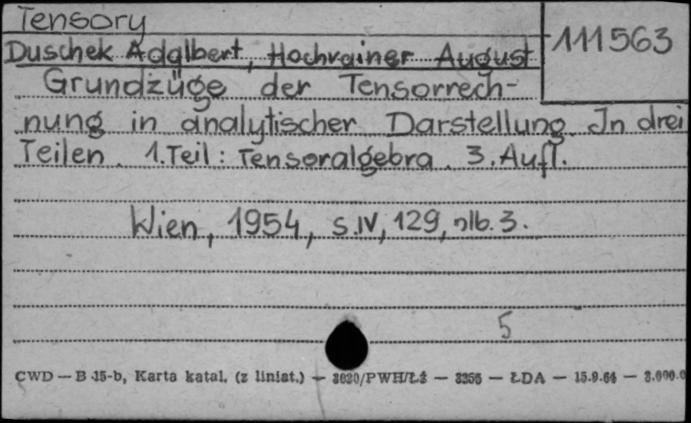 Tensory
111563
Duschek Adalbert, Hochrainer August
Grundzüge der Tensorrech-
nung in analytischer Darstellung. In drei
Teilen. 1. Teil: Tensoralgebra. 3. Aufl.
Wien, 1954, s. IV, 129, nlb. 3.
5
CWD — B-15-b, Karta katal. (z liniat.) — 3020/PWH/Łż — 3255 — ŁDA — 15.9.64 — 3.000.0